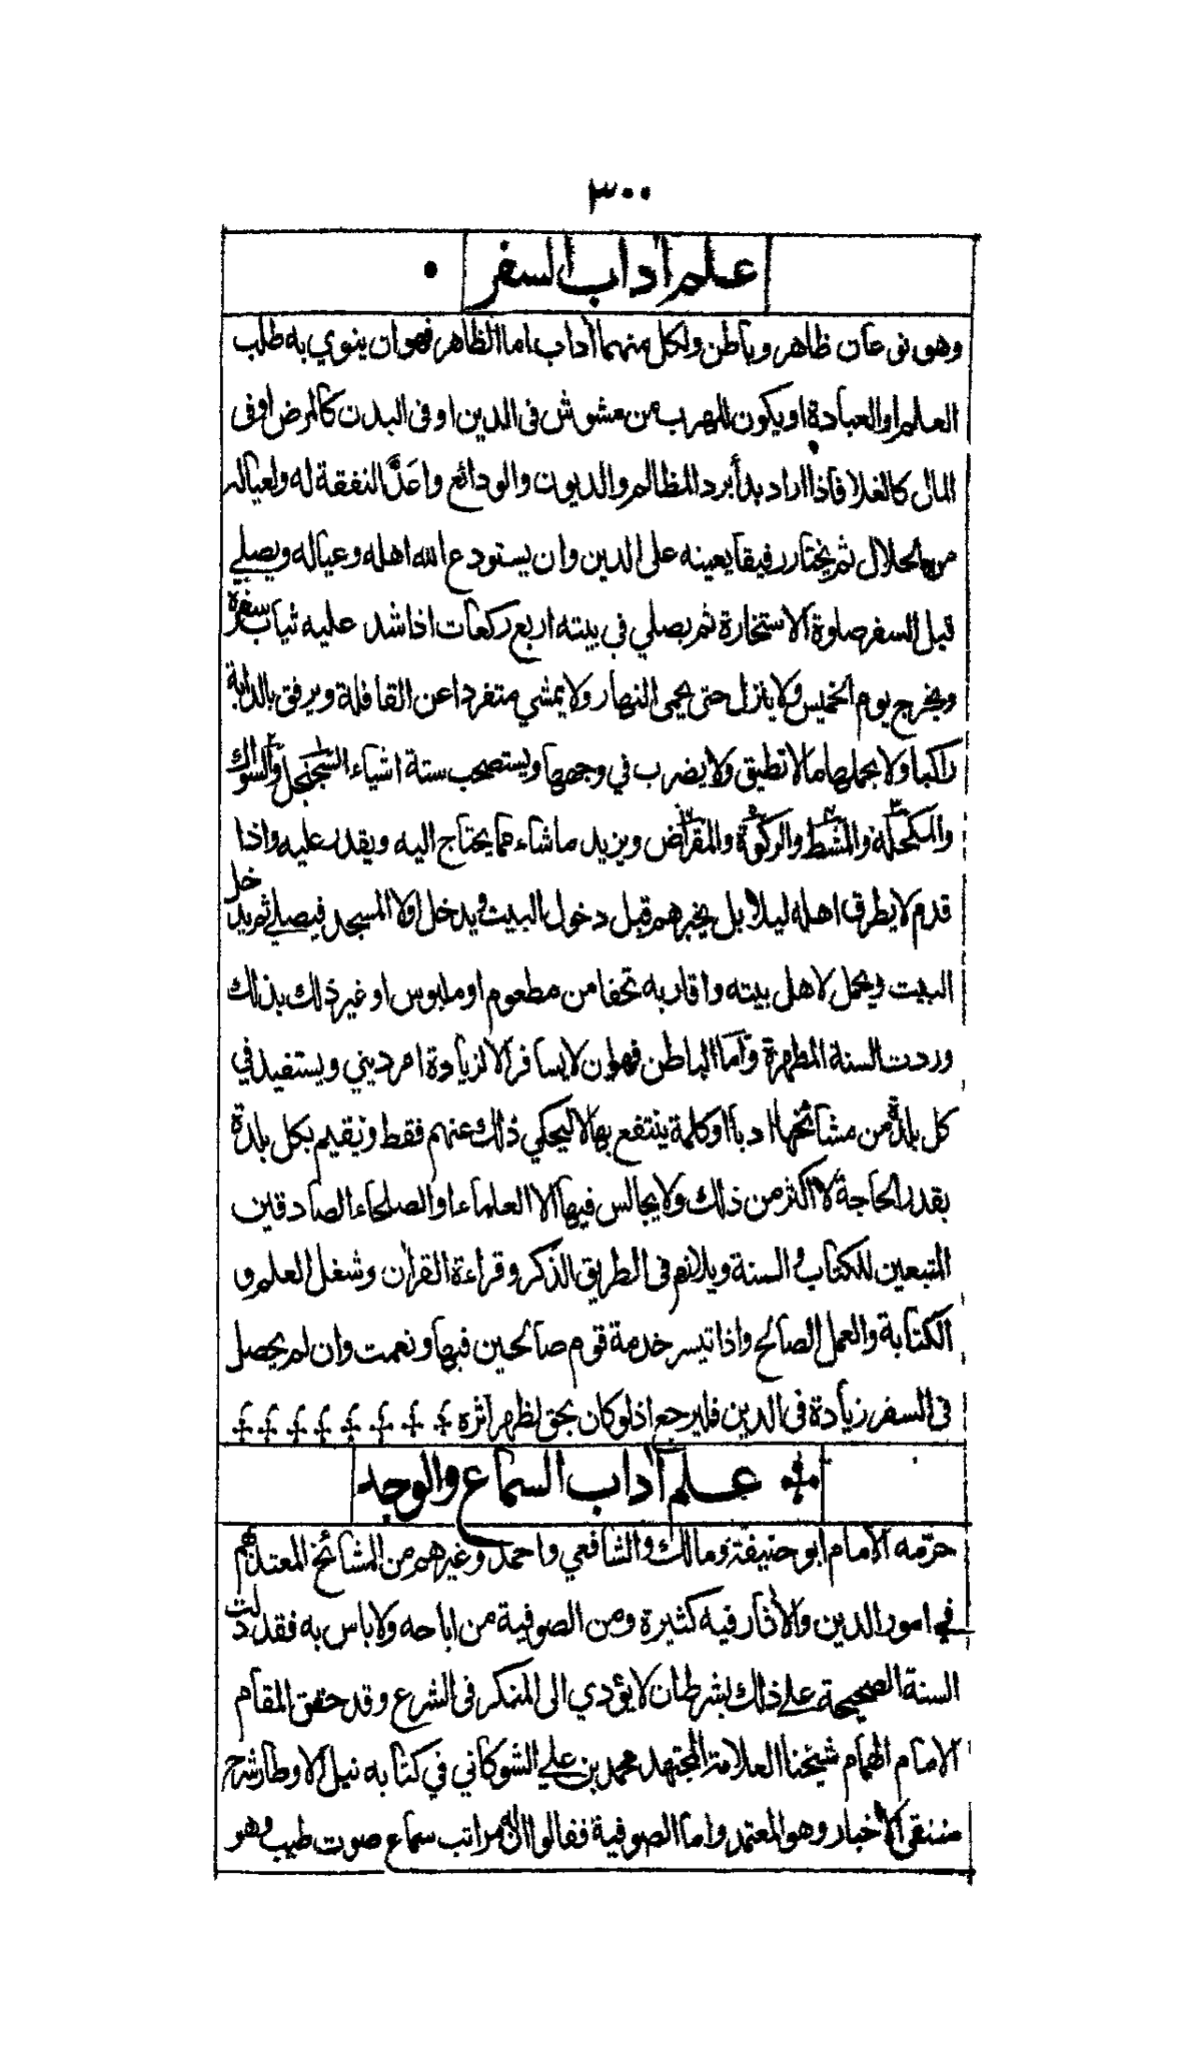 ٣٠٠
علم آداب السفر
وهو نوعان ظاهر وباطن ولكل منهما آداب اما الظاهر فهو ان ينوي به طلب
العلم او العبادة او يكون للهرب من مشوش في الدين او في البدن كالمرض او في
المال كالغلا فاذا اراد بدأ برد المظالم والديون والودائع واعدَّ النفقة له ولعياله
من الحلال ثم يختار رفيقا يعينه على الدين وان يستودع الله اهله وعياله ويصلي
قبل السفر صلوة الاستخارة ثم يصلي في بيته اربع ركعات اذا شد عليه ثياب سفره
ويخرج يوم الخميس ولا ينزل حتى يحمى النهار ولا يمشي متفردا عن القافلة ويرفق بالدابة
راكبا ولا يحملها ما لا تطيق ولا يضرب في وجهها ويستصحب ستة اشياء السجنجل والسواك
والمكحلة والمشط والركوة والمقراض ويزيد ما شاء مما يحتاج اليه ويقدر عليه واذا
قدم لا يطرق اهله ليلا بل يخبرهم قبل دخول البيت ويدخل اولا المسجد فيصلي ثم يدخل
البيت ويحمل لاهل بيته واقاربه تحفا من مطعوم او ملبوس او غير ذلك بذلك
وردت السنة المطهرة وأما الباطن فهو ان لا يسافر الا لزيادة امر ديني ويستفيد في
كل بلدة من مشائخها ادبا او كلمة ينتفع بها لا ليحكي ذلك عنهم فقط ويقيم بكل بلدة
بقدر الحاجة لا اكثر من ذلك ولا يجالس فيها الا العلماء او الصلحاء الصادقين
المتبعين للكتاب والسنة ويلازم في الطريق الذكر وقراءة القرأن وشغل العلم و
الكتابة والعمل الصالح واذا تيسر خدمة قوم صالحين فبها ونعمت وان لم يحصل
في السفر زيادة في الدين فليرجع اذ لو كان بحق لظهر أثره
علم آداب السماع والوجد
حرّمه الامام ابو حنيفة ومالك والشافعي واحمد وغيرهم من المشائخ المعتد بهم
في امور الدين والأثار فيه كثيرة ومن الصوفية من اباحه ولا باس به فقد دلت
السنة الصحيحة على ذلك بشرط ان لا يؤدي الى المنكر في الشرع وقد حقق المقام
الامام الهمام شيخنا العلامة المجتهد محمد بن علي الشوكاني في كتابه نيل الاوطار شرح
منتقى الاخبار وهو المعتمد واما الصوفية فقالوا ان له مراتب سماع صوت طيب وهو